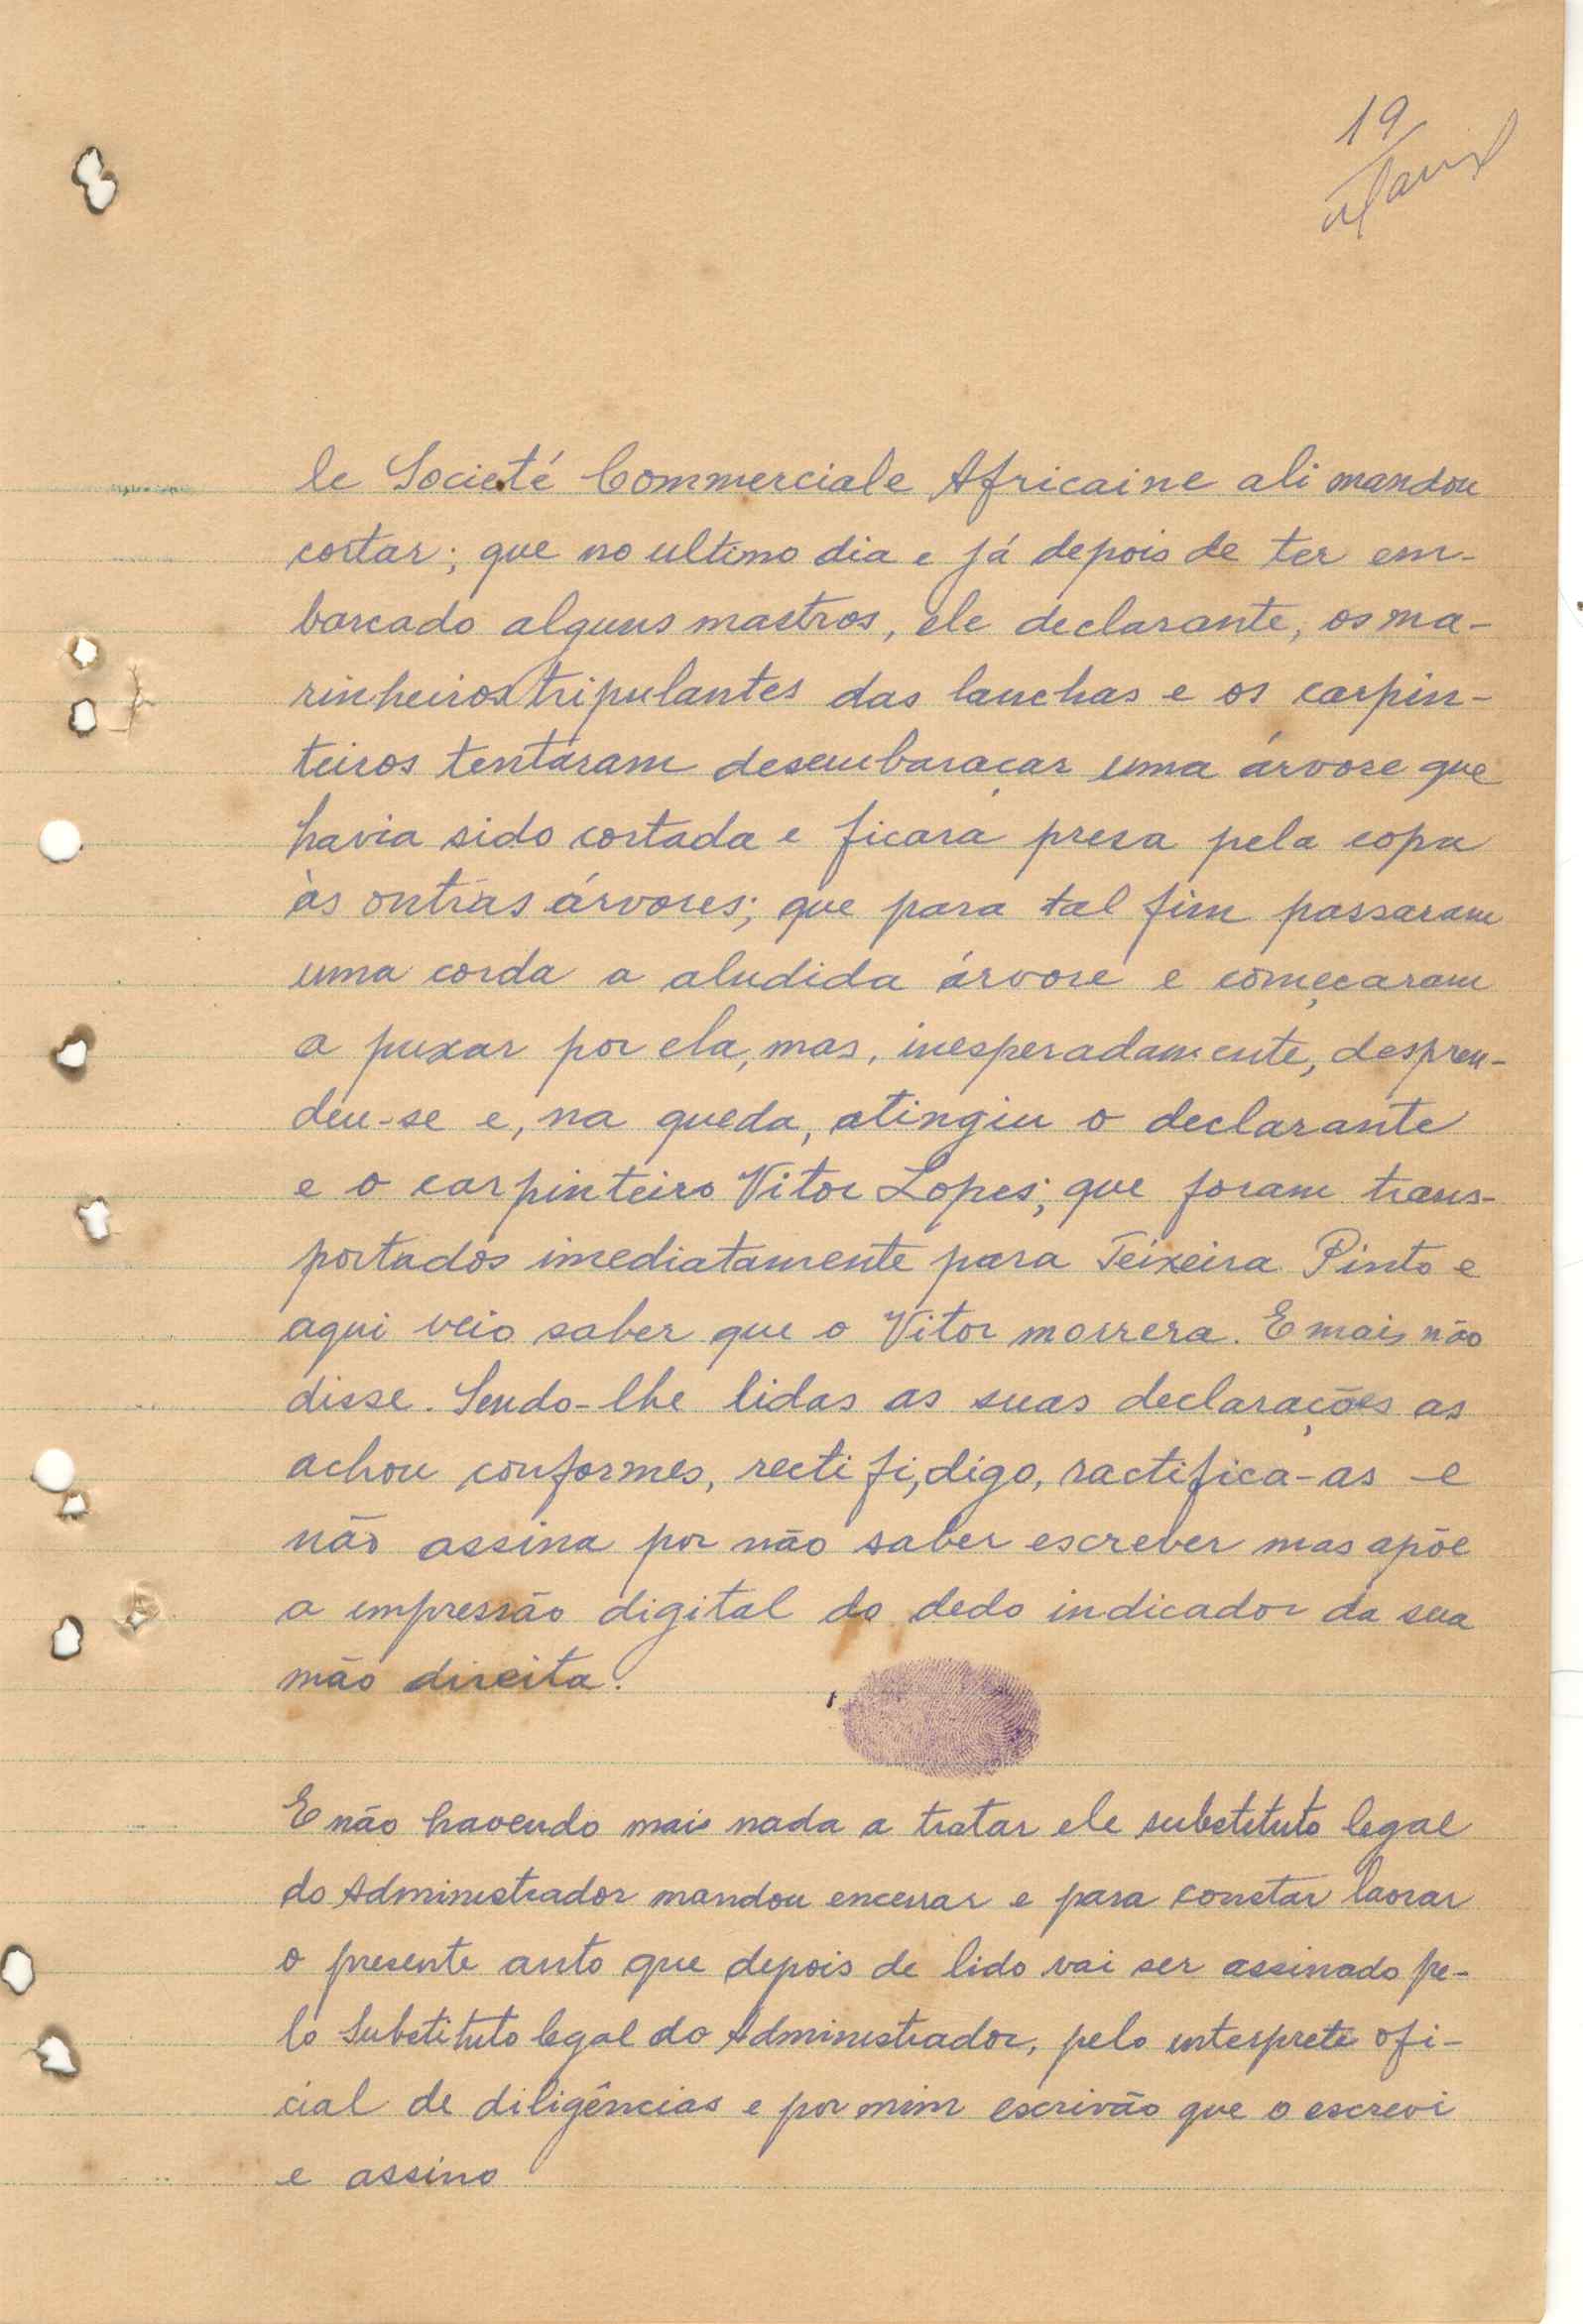 19
le Societé Commerciale Africaine ali mandou
cortar; que no ultimo dia e já depois de ter em-
barcado alguns mastros, ele declarante, os ma-
rinheiros tripulantes das lanchas e os carpin-
teiros tentaram desembaraçar uma árvore que
havia sido cortada e ficara presa pela copa
às outras árvores; que para tal fim passaram
uma corda a aludida árvore e começaram
a puxar por ela, mas, inesperadamente, despren-
deu-se e, na queda, atingiu o declarante
e o carpinteiro Vitor Lopes; que foram trans-
portados imediatamente para Teixeira Pinto e
aqui veio saber que o Vitor morrera. E mais não
disse. Sendo-lhe lidas as suas declarações as
achou conformes, rectifi, digo, ractifica-as e
não assina por não saber escrever mas apõe
a impressão digital do dedo indicador da sua
mão direita.
E não havendo mais nada a tratar ele substituto legal
do Administrador mandou encerrar e para constar lavrar
o presente auto que depois de lido vai ser assinado pe-
lo Substituto legal do Administrador, pelo interprete ofi-
cial de diligências e por mim escrivão que o escrevi
e assino